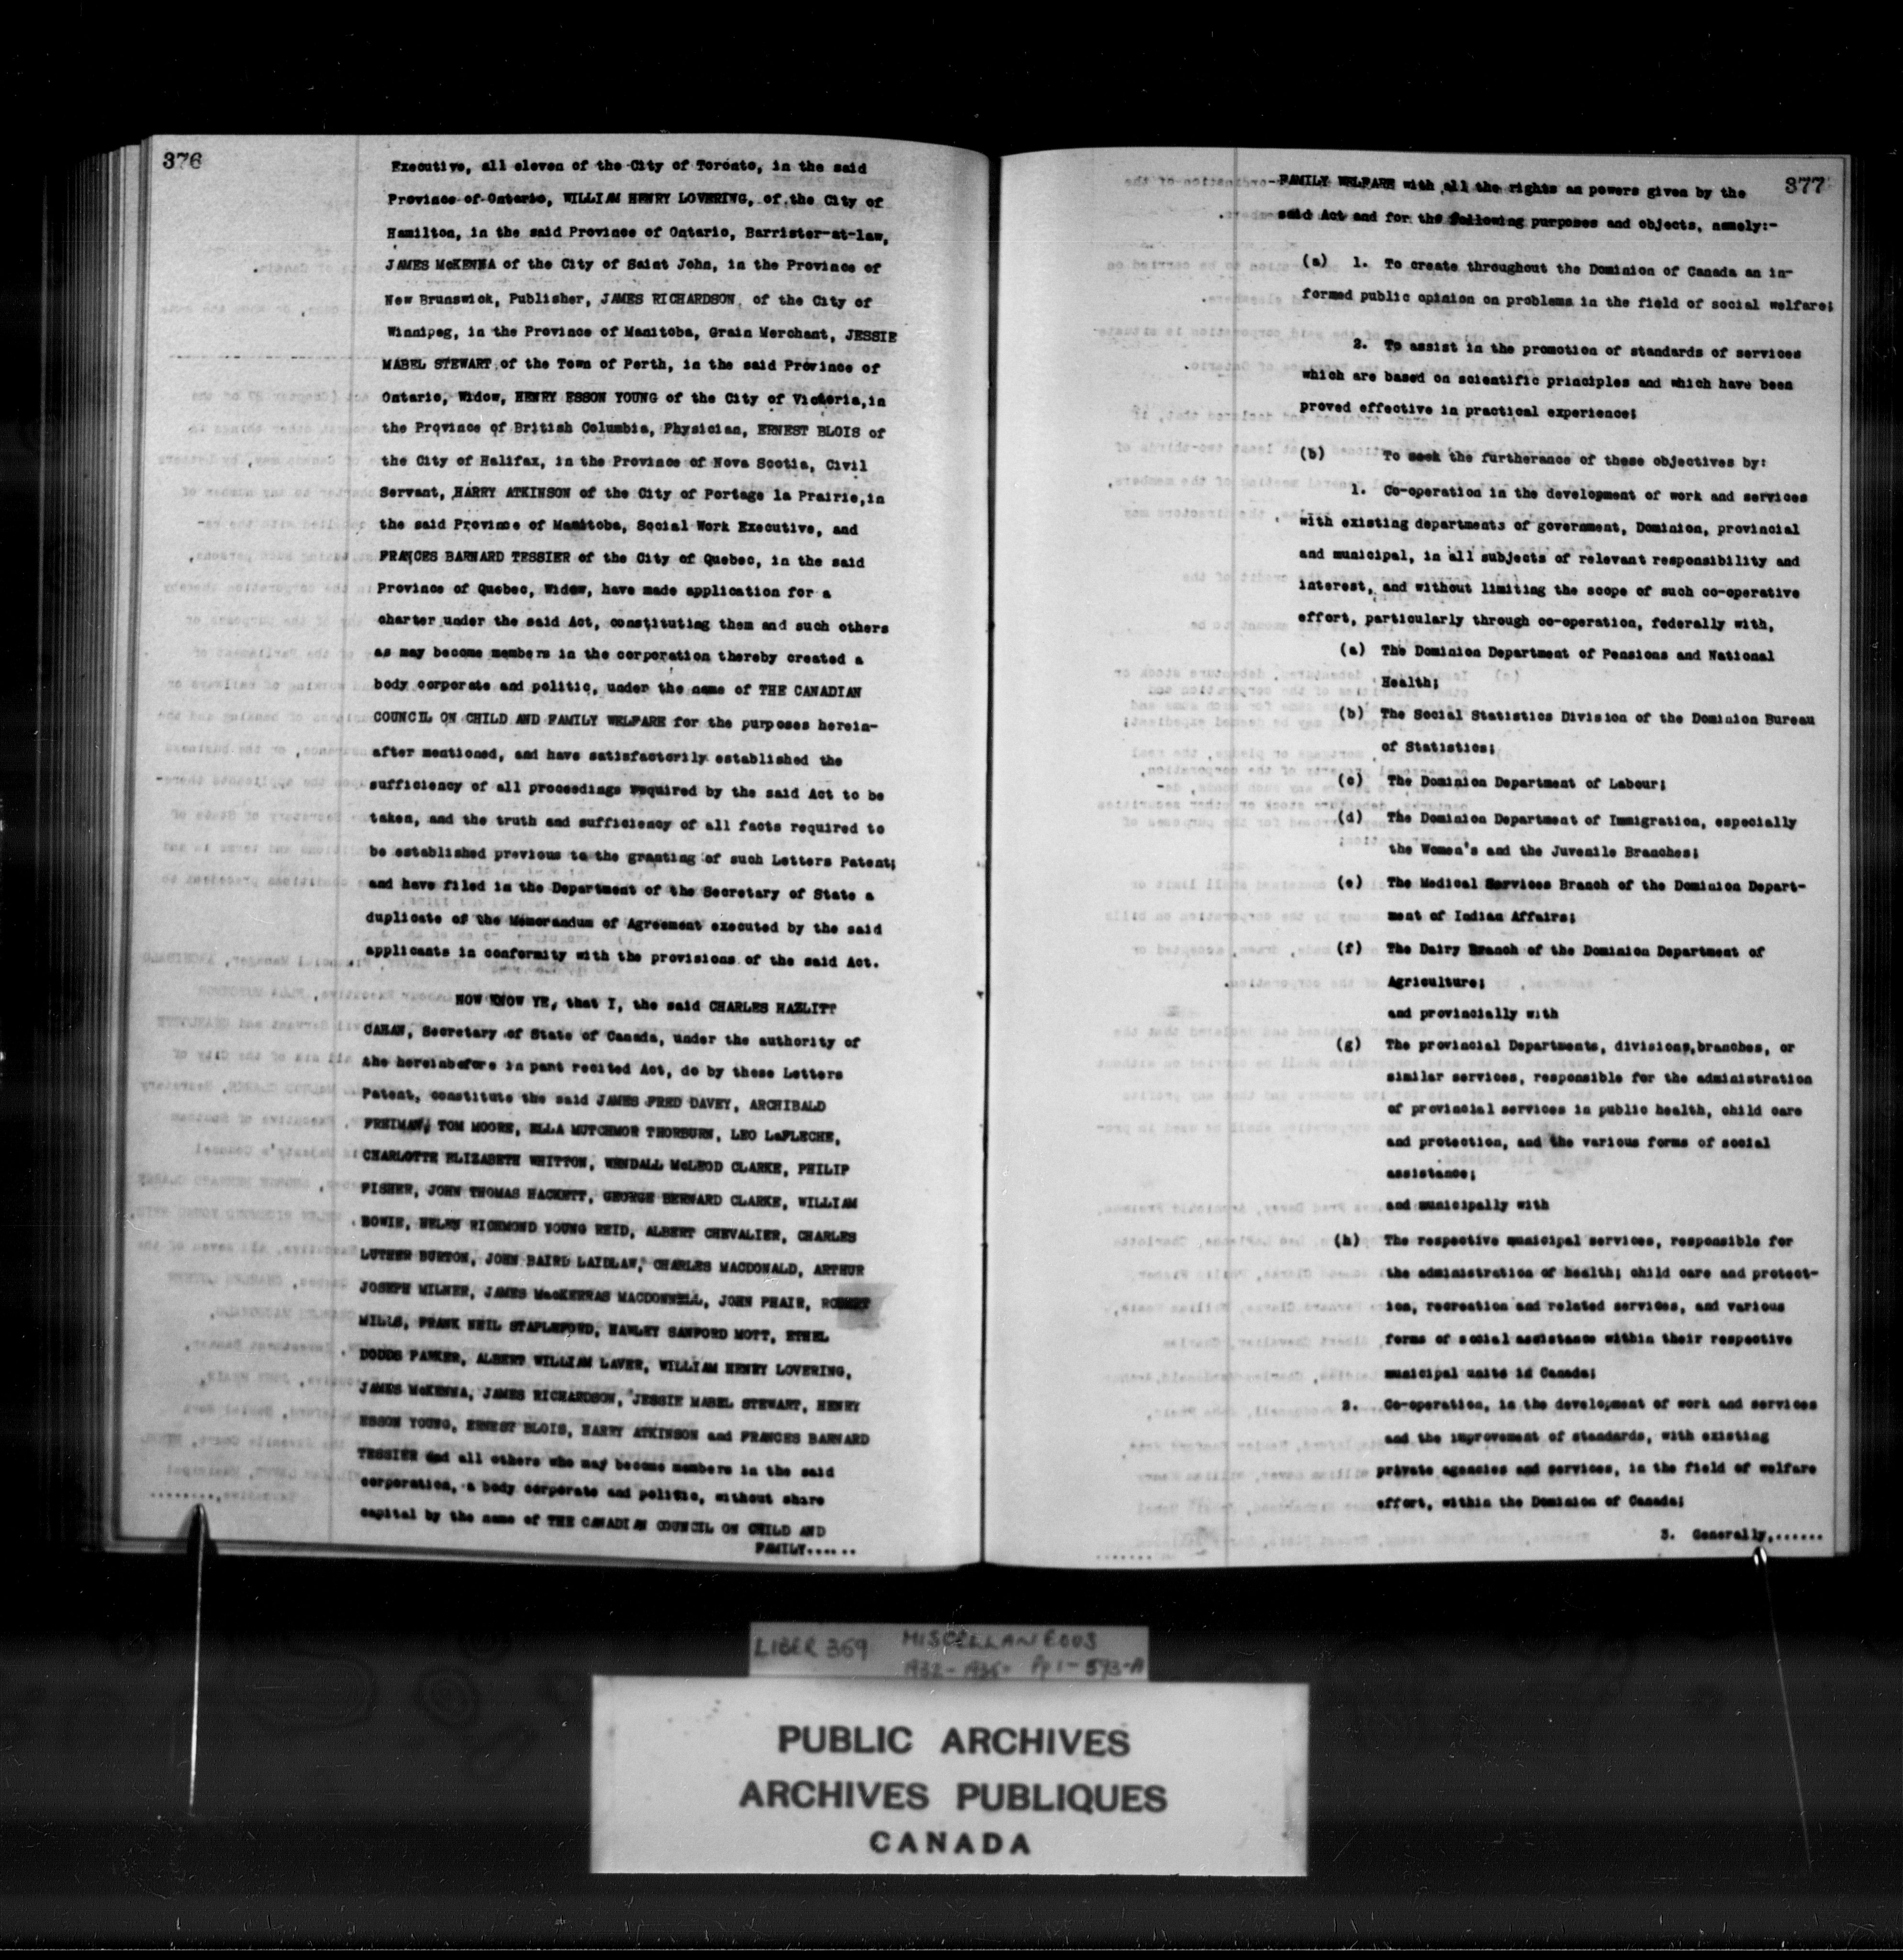 376
Executive, all eleven of the City of Toronto, in the said
Province of Ontario, WILLIAM HENRY LOVERING, of the City of
Hamilton, in the said Province of Ontario, Barrister-at-law,
JAMES McKENNA of the City of Saint John, in the Province of
New Brunswick, Publisher, JAMES RICHARDSON, of the City of
Winnipeg, in the Province of Manitoba, Grain Merchant, JESSIE
MABEL STEWART of the Town of Perth, in the said Province of
Ontario, Widow, HENRY ESSON YOUNG of the City of Victoria,in
the Province of British Columbia, Physician, ERNEST BLOIS of
the City of Halifax, in the Province of Nova Scotia, Civil
Servant, HARRY ATKINSON of the City of Portage la Prairie,in
the said Province of Manitoba, Social Work Executive, and
FRANCES BARNARD TESSIER of the City of Quebec, in the said
Province of Quebec, Widow, have made application for a
charter under the said Act, constituting them and such others
as may become members in the corporation thereby created a
body corporate and politic, under the name of THE CANADIAN
COUNCIL ON CHILD AND FAMILY WELFARE for the purposes herein-
after mentioned, and have satisfactorily established the
sufficiency of all proceedings required by the said Act to be
taken, and the truth and sufficiency of all facts required to
be established previous to the granting of such Letters Patent;
and have filed in the Department of the Secretary of State a
duplicate of the Memorandum of Agreement executed by the said
applicants in conformity with the provisions of the said Act.
NOW KNOW YE, that I, the said CHARLES HAZLITT
CAHAN, Secretary of State of Canada, under the authority of
the hereinbefore in part recited Act, do by these Letters
Patent, constitute the said JAMES FRED DAVEY, ARCHIBALD
FREIMAN, TOM MOORE, ELLA MUTCHMOR THORBURN, LEO LaFLECHE,
CHARLOTTE ELIZABETH WHITTON, WENDALL McLEOD CLARKE, PHILIP
FISHER, JOHN THOMAS HACKETT, GEORGE BERNARD CLARKE, WILLIAM
BOWIE, HELEN RICHMOND YOUNG REID, ALBERT CHEVALIER, CHARLES
LUTHER BURTON, JOHN BAIRD LAIDLAW, CHARLES MACDONALD, ARTHUR
JOSEPH MILNER, JAMES MacKERRAS MACDONNELL, JOHN PHAIR, ROBERT
MILLS, FRANK NEIL STAPLEFORD, HAWLEY SANFORD MOTT, ETHEL
DODDS PARKER, ALBERT WILLIAM LAVER, WILLIAM HENRY LOVERING,
JAMES McKENNA, JAMES RICHARDSON, JESSIE MABEL STEWART, HENRY
ESSON YOUNG, ERNEST BLOIS, HARRY ATKINSON and FRANCES BARNARD
TESSIER and all others who may become members in the said
corporation, a body corporate and politic, without share
capital by the name of THE CANADIAN COUNCIL ON CHILD AND
FAMILY......
377
FAMILY WELFARE with all the rights an powers given by the
said Act and for the following purposes and objects, namely:-
(a) 1. To create throughout the Dominion of Canada an in-
formed public opinion on problems in the field of social welfare;
2. To assist in the promotion of standards of services
which are based on scientific principles and which have been
proved effective in practical experience;
(b) To seek the furtherance of these objectives by:
1. Co-operation in the development of work and services
with existing departments of government, Dominion, provincial
and municipal, in all subjects of relevant responsibility and
interest, and without limiting the scope of such co-operative
effort, particularly through co-operation, federally with,
(a) The Dominion Department of Pensions and National
Health;
(b) The Social Statistics Division of the Dominion Bureau
of Statistics;
(c) The Dominion Department of Labour;
(d) The Dominion Department of Immigration, especially
the Women's and the Juvenile Branches;
(e) The Medical Services Branch of the Dominion Depart-
ment of Indian Affairs;
(f) The Dairy Branch of the Dominion Department of
Agriculture;
and provincially with
(g) The provincial Departments, divisions,branches, or
similar services, responsible for the administration
of provincial services in public health, child care
and protection, and the various forms of social
assistance;
and municipally with
(h) The respective municipal services, responsible for
the administration of health; child care and protect-
ion, recreation and related services, and various
forms of social assistance within their respective
municipal units in Canada;
2. Co-operation, in the development of work and services
and the improvement of standards, with existing
private agencies and services, in the field of welfare
effort, within the Dominion of Canada;
3. Generally,......
LIBER 369 MISCELLANEOUS
1932-1935- Pp 1-593-A
PUBLIC ARCHIVES
ARCHIVES PUBLIQUES
CANADA